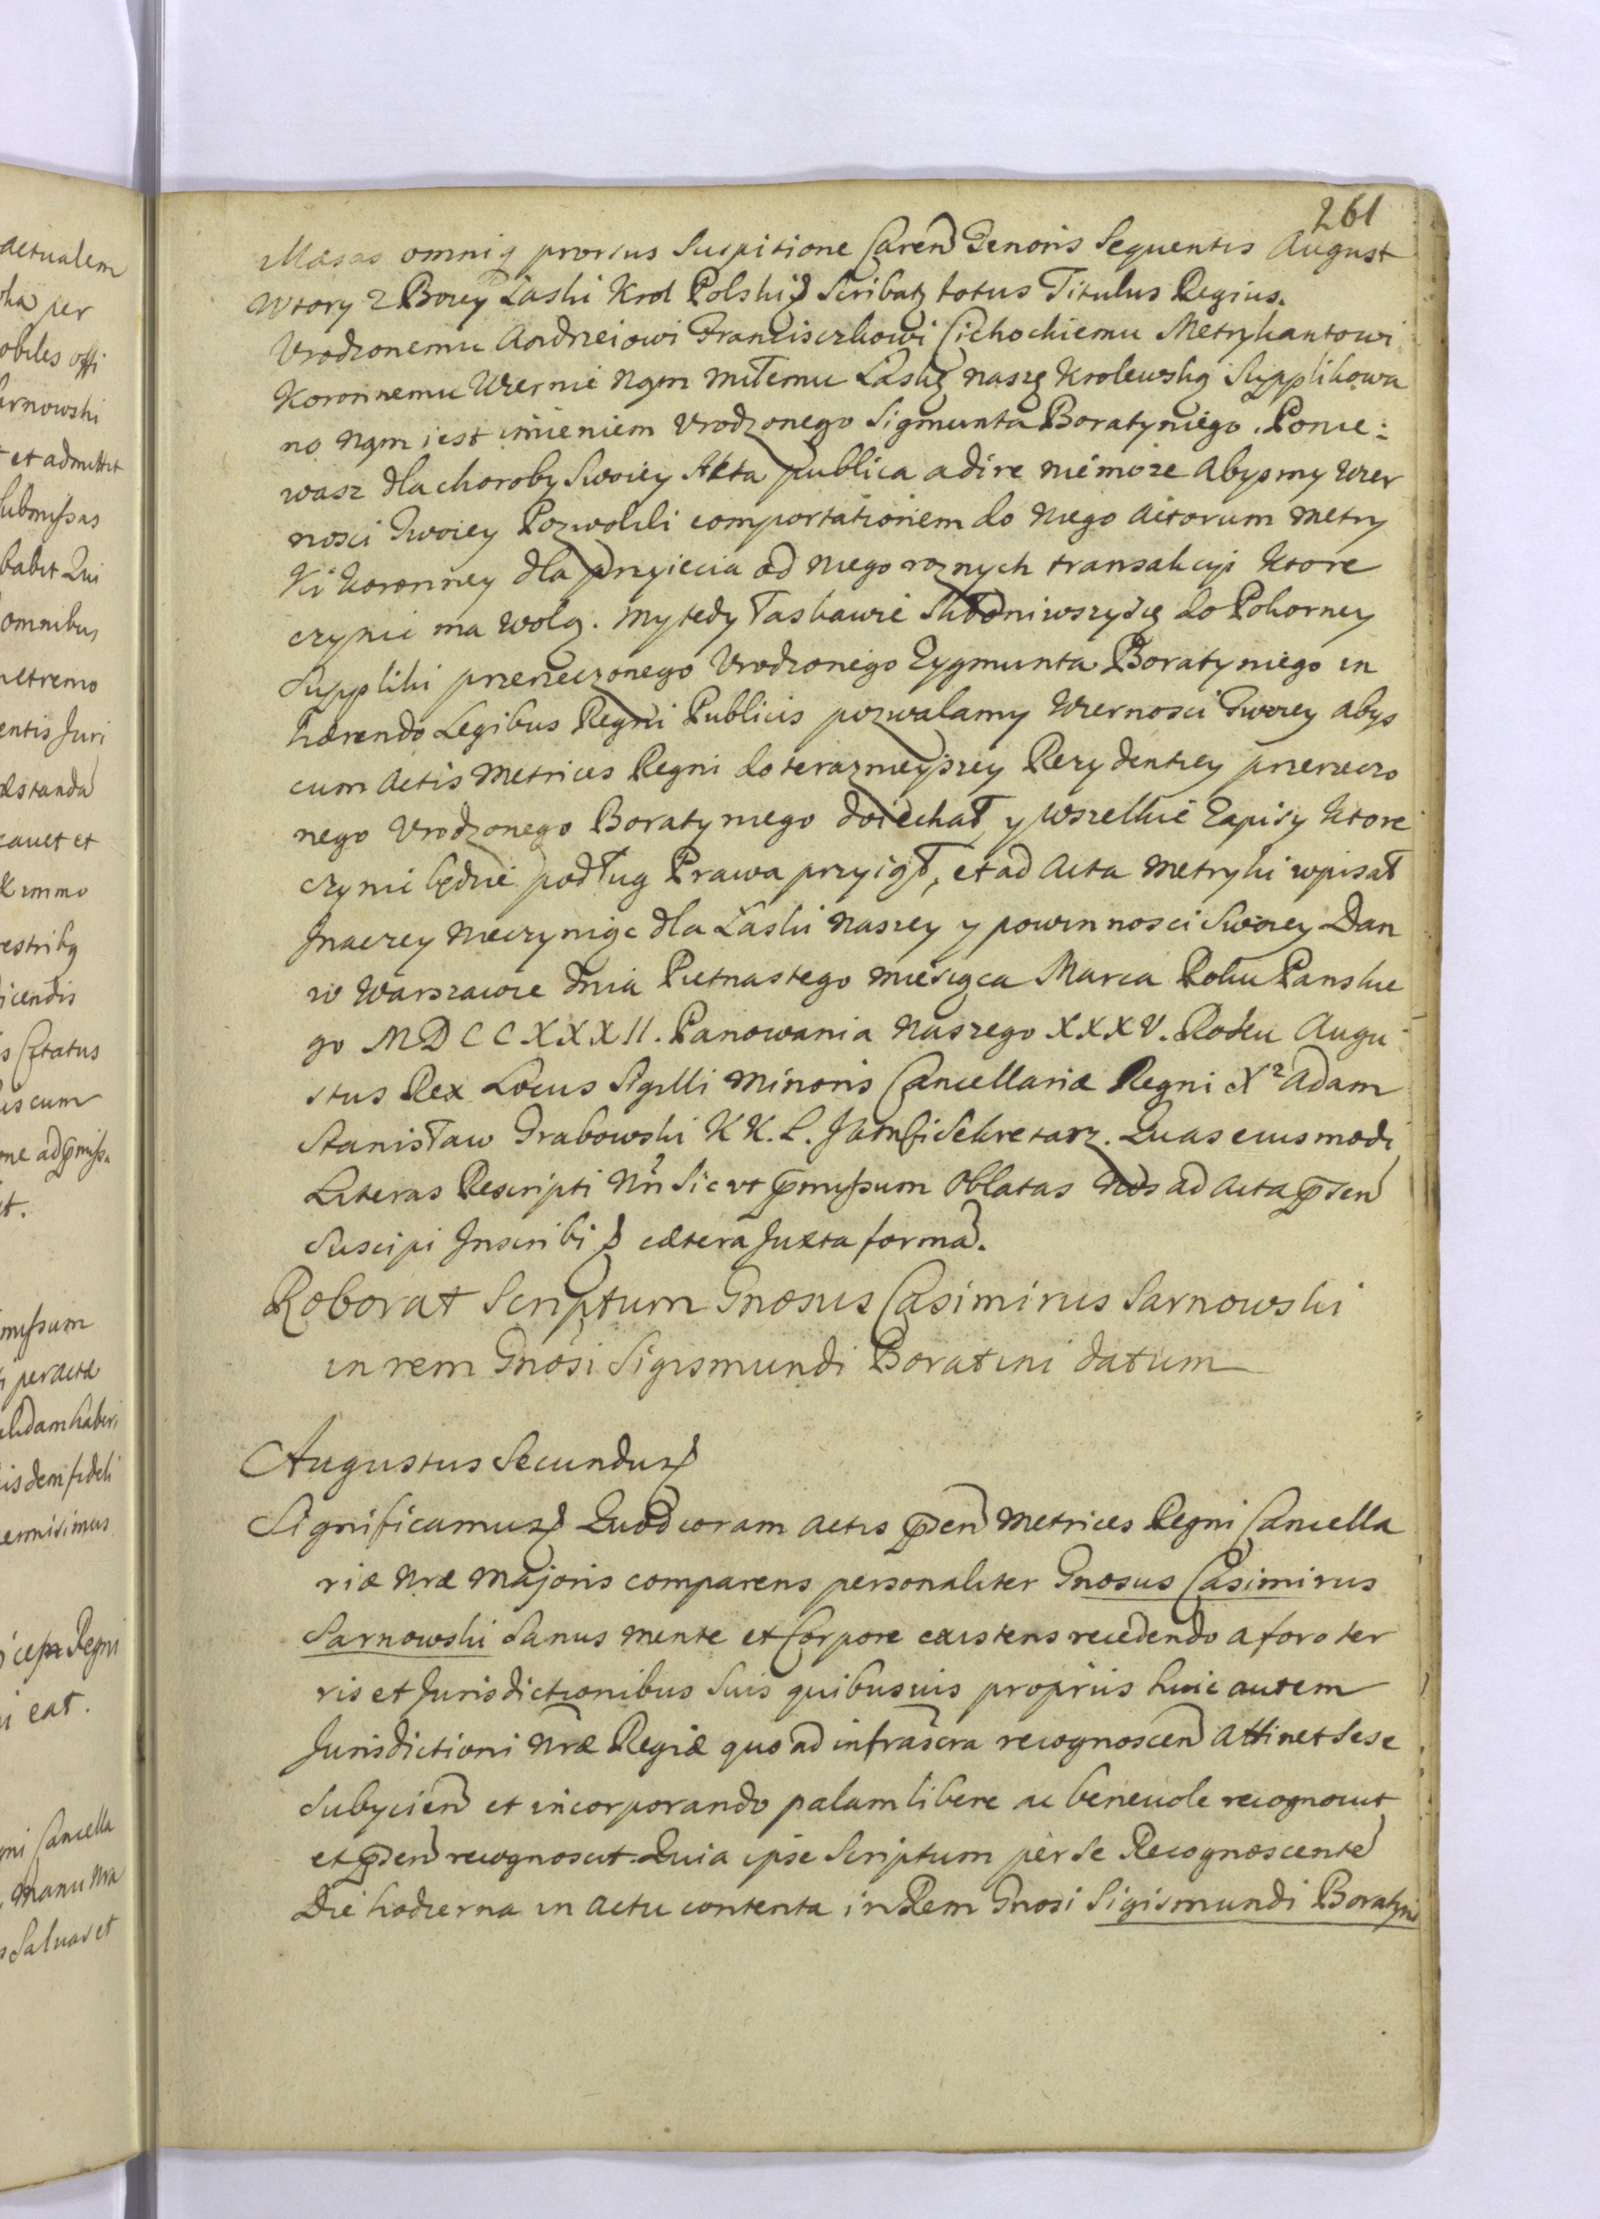 261
Masas omniq prorsus Suspitione Caren Tenoris Sequentis August
Wtory z Bożey Łaski Krol Polski Scribatz totus Titulus Regius.
Vrodzonemu Andrzeiowi Franciszkowi Cichockiemu Metrykantowi
Koronnemu Wiernie Nąm miłemu Łaskę naszę Krolewską Supplikowa
no Nąm iest imieniem Vrodzonego Sigmunta Boratyniego. Ponie:
wasz dla choroby Swoiey Akta publica adire niemoże Abysmy Wier
nosci Twoiey Pozwolili comportationem do niego Actorum Metry
ki Koronney dla przyiecia od niego roznych transakcyi ktore
czynic ma wolą. My tedy łaskawie Skłoniwszy się do Pokorney
Suppliki przerzeczonego Vrodzonego Zygmunta Boratyniego in
hærendo Legibus Regni Publicis pozwalamy Wiernosci Twoiey abys
cum Actis Metrices Regni do teraznieyszey Rezydentiey przerzeczo
nego Vrodzonego Boratyniego doiechał, y wszelkie Zapisy ktore
czynic będzie podług Prawa przyiął, et ad Acta Metryki wpisał
Inaczey nieczyniąc dla Łaski Naszey y powinnosci Swoiey Dan
w Warszawie dnia Pietnastego miesiąca Marca Roku Panskie
go MDCCXXXII. Panowania Naszego XXXV. Roku Augu
stus Rex Locus Sigilli Minoris Cancellariæ Regni X Adam
Stanisław Grabowski K K. L. Sekretarz. Quas eiusmodi
Literas Rescripti Nri Sic ut pmissum Oblatas Nos ad Acta psen
Suscipi Inscribi cætera Juxta forma.
Roborat Scriptum Gnosus Casimirus Sarnowski
in rem Gnosi Sigismundi Boratini datum
Augustus Secundus
Significamus Quod coram Actis psen Metrices Regni Cancella
riæ Nræ Majoris comparens personaliter Gnosus Casimirus
Sarnowski Sanus mente et Corpore existens recedendo a foro ter
ris et Jurisdictionibus Suis quibusuis propriis huic autem
Jurisdictioni Nræ Regiæ quo ad infrascra recognoscen attinet Sese
Subycien et incorporando palam libere ac beneuole recognouit
et psen recognoscit. Quia ipse Scriptum per Se Recognoscente
Die hodierna in Actu contenta in Rem Gnosi Sigismundi Boratyni